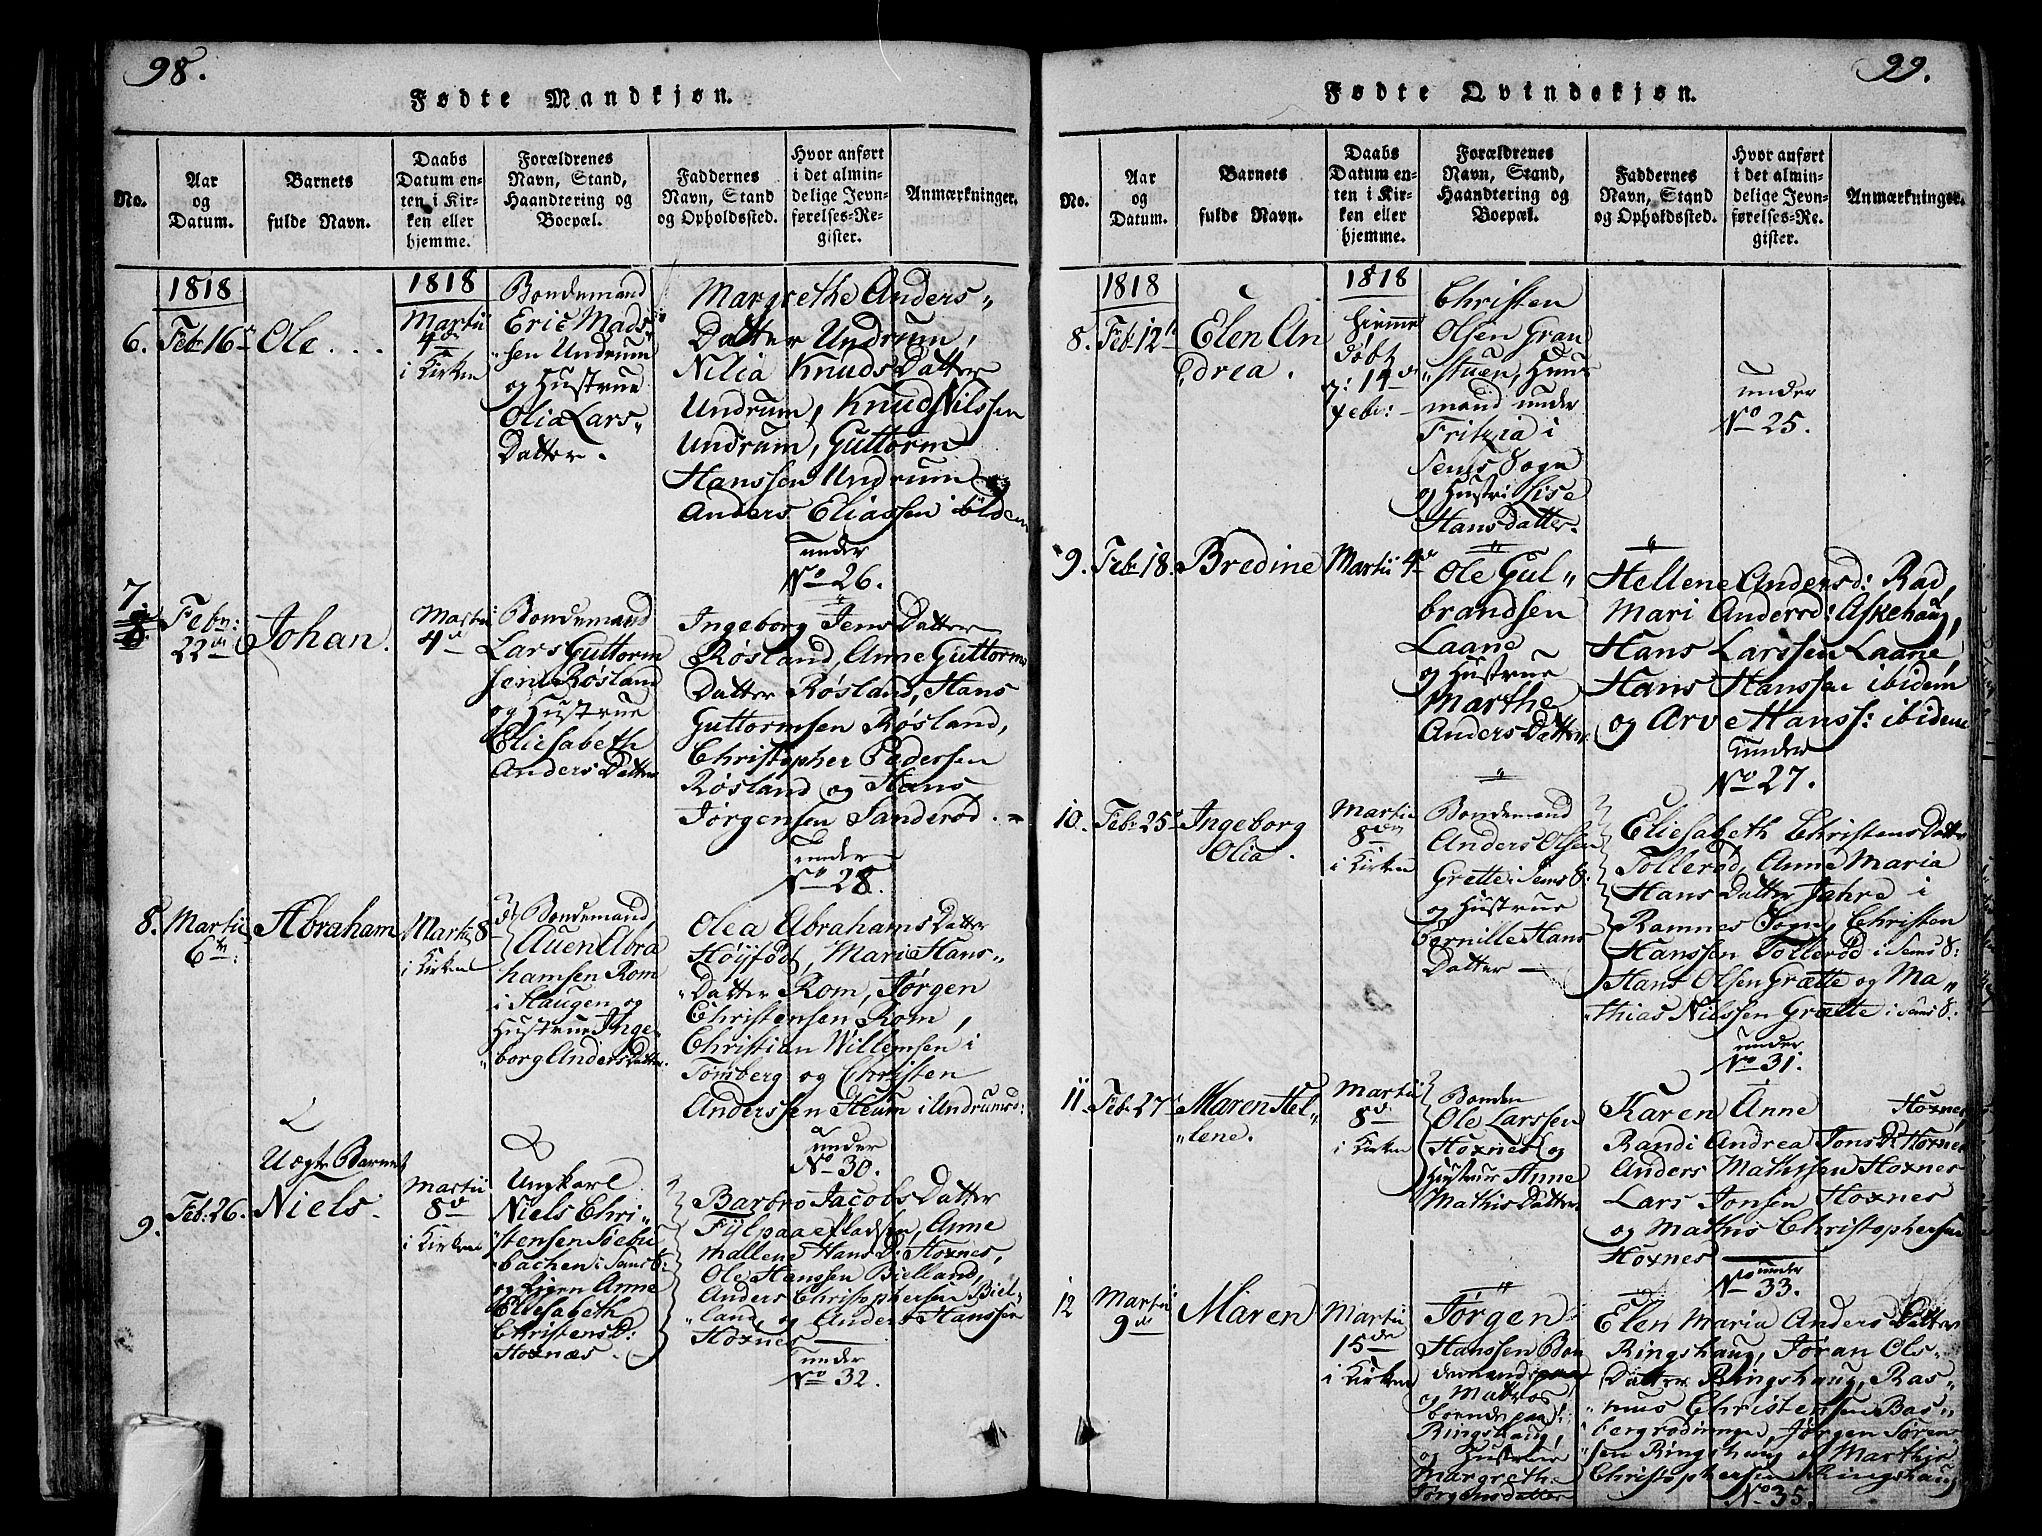 98.
Fødte Mandkjøn.
No.
Aar
og
Datum.
Barnets
fulde Navn.
Daabs
Datum en-
ten i Kir-
ken eller
hjemme.
Forældrenes
Navn, Stand,
Haandtering og
Boepæl.
Faddernes
Navn, Stand
og Opholdssted.
Hvor anført
i det almin-
delige Jevn-
førelses-Re-
gister.
Anmærkninger.
1818
6. Feb: 16
Ole
1818
Martii
4
i Kirken
Bondemand
Eric Mads
sen Undrum
og Hustrue
Olia Lars-
Datter.
Margrethe Anders
Datter Undrum,
Nilia Knuds Datter
Undrum, Knud Nilssen
Undrum, Guttorm
Hanssen Undrum og
Anders Eliassen ibidem
under
No 26.
7.
Febr:
22
Johan.
Martii
4
Bondemand
Lars Guttorm
sen Røsland
og Hustrue
Eliesabeth
Anders Datter
Ingeborg Jens Datter
Røsland, Anne Guttorms
Datter Røsland, Hans
Guttormsen Røsland,
Christopher Pedersen
Røsland og Hans
Jørgensen Sanderød.
under
No 28.
8. Martii
6
Abraham
Martii 8
i Kirken
Bondemand
Auen Abra
hamsen Rom
i Haugen og
Hustrue Inge
borg Anders Datter.
Olea Abrahams Datter
Høijfødt, Marie Hans
Datter Rom, Jørgen
Christensen Rom,
Christian Willemsen i
Tønsberg og Christen
Anderssen Heum i Undrumsd:
under
No 30.
9. Feb: 26.
Uægte Barnet
Niels
Martii
8
i Kirken
Ungkarl
Niels Chri
stensen Siebu
bachen i Sems S:
og Pigen Anne
Eliesabeth
Christens D:
Hoxnæs.
Barbro Jacobs Datter
Fylpaaefladsen, Anne
Mallene Hans D: Hoxnes,
Ole Hanssen Bielland,
Anders Christophersen Biel
land, og Anders Hanssen
Hoxnes
under
No 32.
99.
Fødte Qvindekjøn.
No.
Aar
og
Datum.
Barnets
fulde Navn.
Daabs
Datum en-
ten i Kir-
ken eller
hjemme.
Forældrenes
Navn, Stand,
Haandtering og
Boepæl.
Faddernes
Navn, Stand
og Opholdssted.
Hvor anført
i det almin-
delige Jevn-
førelses-Re-
gister.
Anmærkninger.
1818
8. Feb: 12
Elen An
drea.
1818
hiemme
døbt
14
Febr:
Christen
Olsen Gran
stuen, Huus
mand under
Fritzia i
Sems Sogn
og Hustri Lise
Hansdatter.
under
No 25.
9. Feb: 18.
Bredine
Martii 4
Ole Gul
brandsen
Laane
og Hustrue
Marthe
Anders Datter
Hellene Andersd: Rad,
Mari Andersd: Askehaug,
Hans Larssen Laane,
Hans Hanssen ibidem
og Arve Hanss: ibidem
under
No 27.
10. Feb: 25
Ingeborg
Olia.
Martii
8
i Kirken
Bondemand
Anders Olsen
Grette i Sems S:
og Hustrue
Pernille Hans
Datter
Eliesabeth Christens Datter
Tollerød, Anne Maria
Hans Datter Jahre i
Ramnes Sogn, Christen
Hanssen Tollerød i Sems S:
Hans Olsen Grætte og Ma
thias Nilssen Grætte i Sems S:
under
No 31.
11. Feb: 27
Maren Hel
lene.
Martii
8
i Kirken
Bonden
Ole Larssen
Hoxnes og
Hustrue Anne
Mathis Datter
Karen Anne Hoxnes,
Randi Andrea Jons D: Hoxnes
Anders Mathissen Hoxnes
Lars Jonsen Hoxnes
og Mathis Christophersen
Hoxnes
under
No 33.
12 Martii
9
Maren
Martii
15
i Kirken
Jørgen
Hanssen Bon
demand
og Matros
boende paa
Ringshaug,
og Hustrue
Margreth
Jørgensdatter
Elen Maria Anders Datter
Ringshaug, Jøran Ols
Datter Ringshaug, Ras
mus Christensen Bas
bergrødningen, Jørgen Søren
sen Ringshaug og Marthis
Christophersen Ringshaug
No 35.